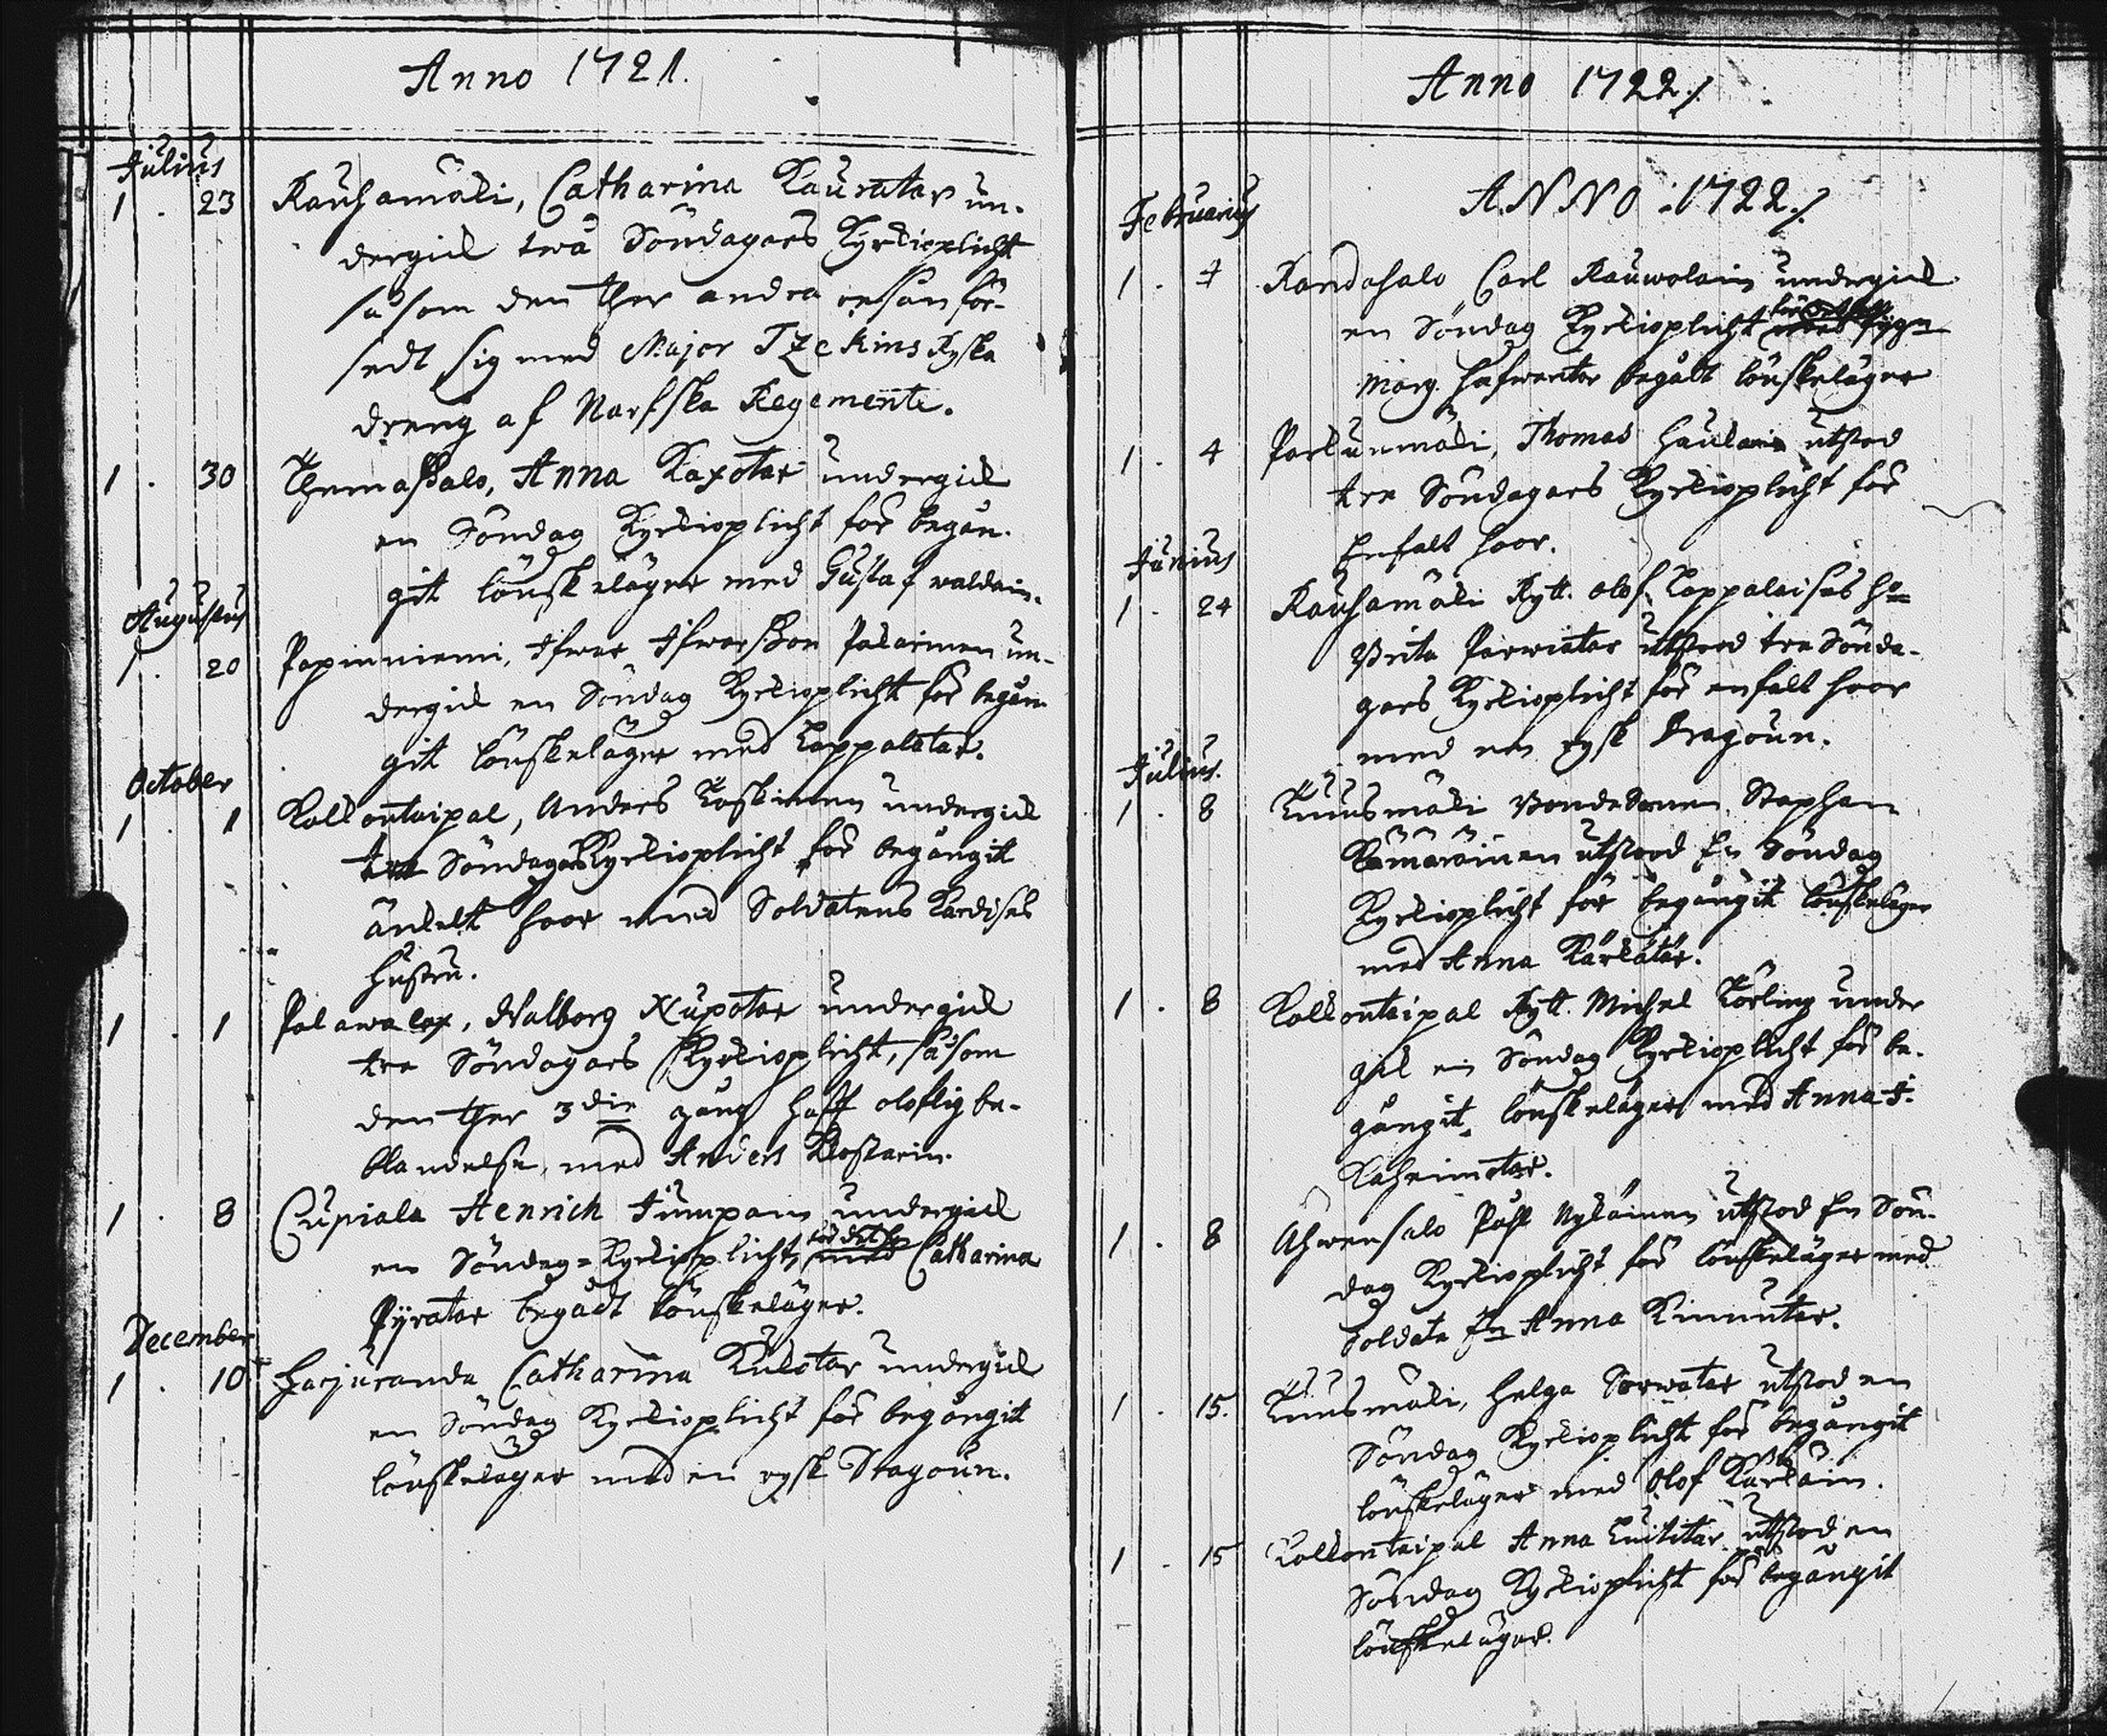 Anno 1721.
Julius
1 . 23 Rauhamäki, Catharina Kauratar un-
dergick twå Söndagars Kyrkioplicht
såsom den ther andra resan för-
sedt sig med Major Tzekins Ryska
dreng af Narfska Regemente.
1 . 30 Themaßalo, Anna Kaxotar undergick
en Söndag Kyrkioplicht för begån-
git lönskeläger med Gustaf waldain.
Augustus
1 . 20 Papinniemi, Ifwar Ifwarßon Pakarinen un-
dergick en Söndag Kyrkioplicht för begån-
git Lönskeläger med Lappalatar.
October
1 . 1 Kollontaipal, Anders Koskinen undergick
tre Söndagars Kyrkioplicht för begångit
änkelt hoor med Soldatens Kardises
hustru.
1 . 1 Palawalax, Walborg Nupotar undergick
tre Söndagars Kyrkioplicht, såsom
den ther 3die gång haft oloflig be-
blandelse, med Anders Klostarin.
1 . 8 Cupiala Henrich Jumpain undergick
en Söndag Kyrkioplicht, för det han med Catharina
Pyratar begådt lönskeläger.
December
1 . 10 Harjuranda Catharina Kukotar undergick
en Söndag Kyrkioplicht för begångit
lönskeläger med en rysk Dragoun.
Anno 1722./.
ANNO :1722./.
Februarius
1 . 4 Randasalo Carl Rauwolain undergick
en Söndag Kyrkioplicht för det han
Marg. Hafwentar begått lönskeläger
1 . 4 Parkunmäki, Thomas Haukain utstod
tre Söndagars Kyrkioplicht för
Enfalt hoor.
Junius
1 . 24 Rauhamäki Rytt. Olof Lappalaises Hu
Brita Parwiatar utstood tre Sönda-
gars Kyrkioplicht för enfalt hoor
med en rysk Dragoun.
Julius.
1 . 8 Kuusmäki Bondesonen Staphan
Kämäräinen utstood En Söndag
Kyrkioplicht för begångit lönskeläger
med Anna Kärkätär.
1 . 8 Kollontaipal Rytt. Michel Körling under
gick en Söndag Kyrkioplicht för be-
gångit lönskeläger med Anna J.
Kaheimotar.
1 . 8 Ahwensalo Påhl Nykäinen utstod En Sön-
dag Kyrkioplicht för lönskeläger med
Soldate En Anna Kinnuntar.
1 . 15. Kuusmäki, Helga Sorwatar utstod en
Söndag Kyrkioplicht för begångit
lönskeläger med Olof Kärkäin.
1 . 15 Kollontaipal Anna Luititar utstod en
Söndag Kyrkioplicht för begångit
lönskeläger.